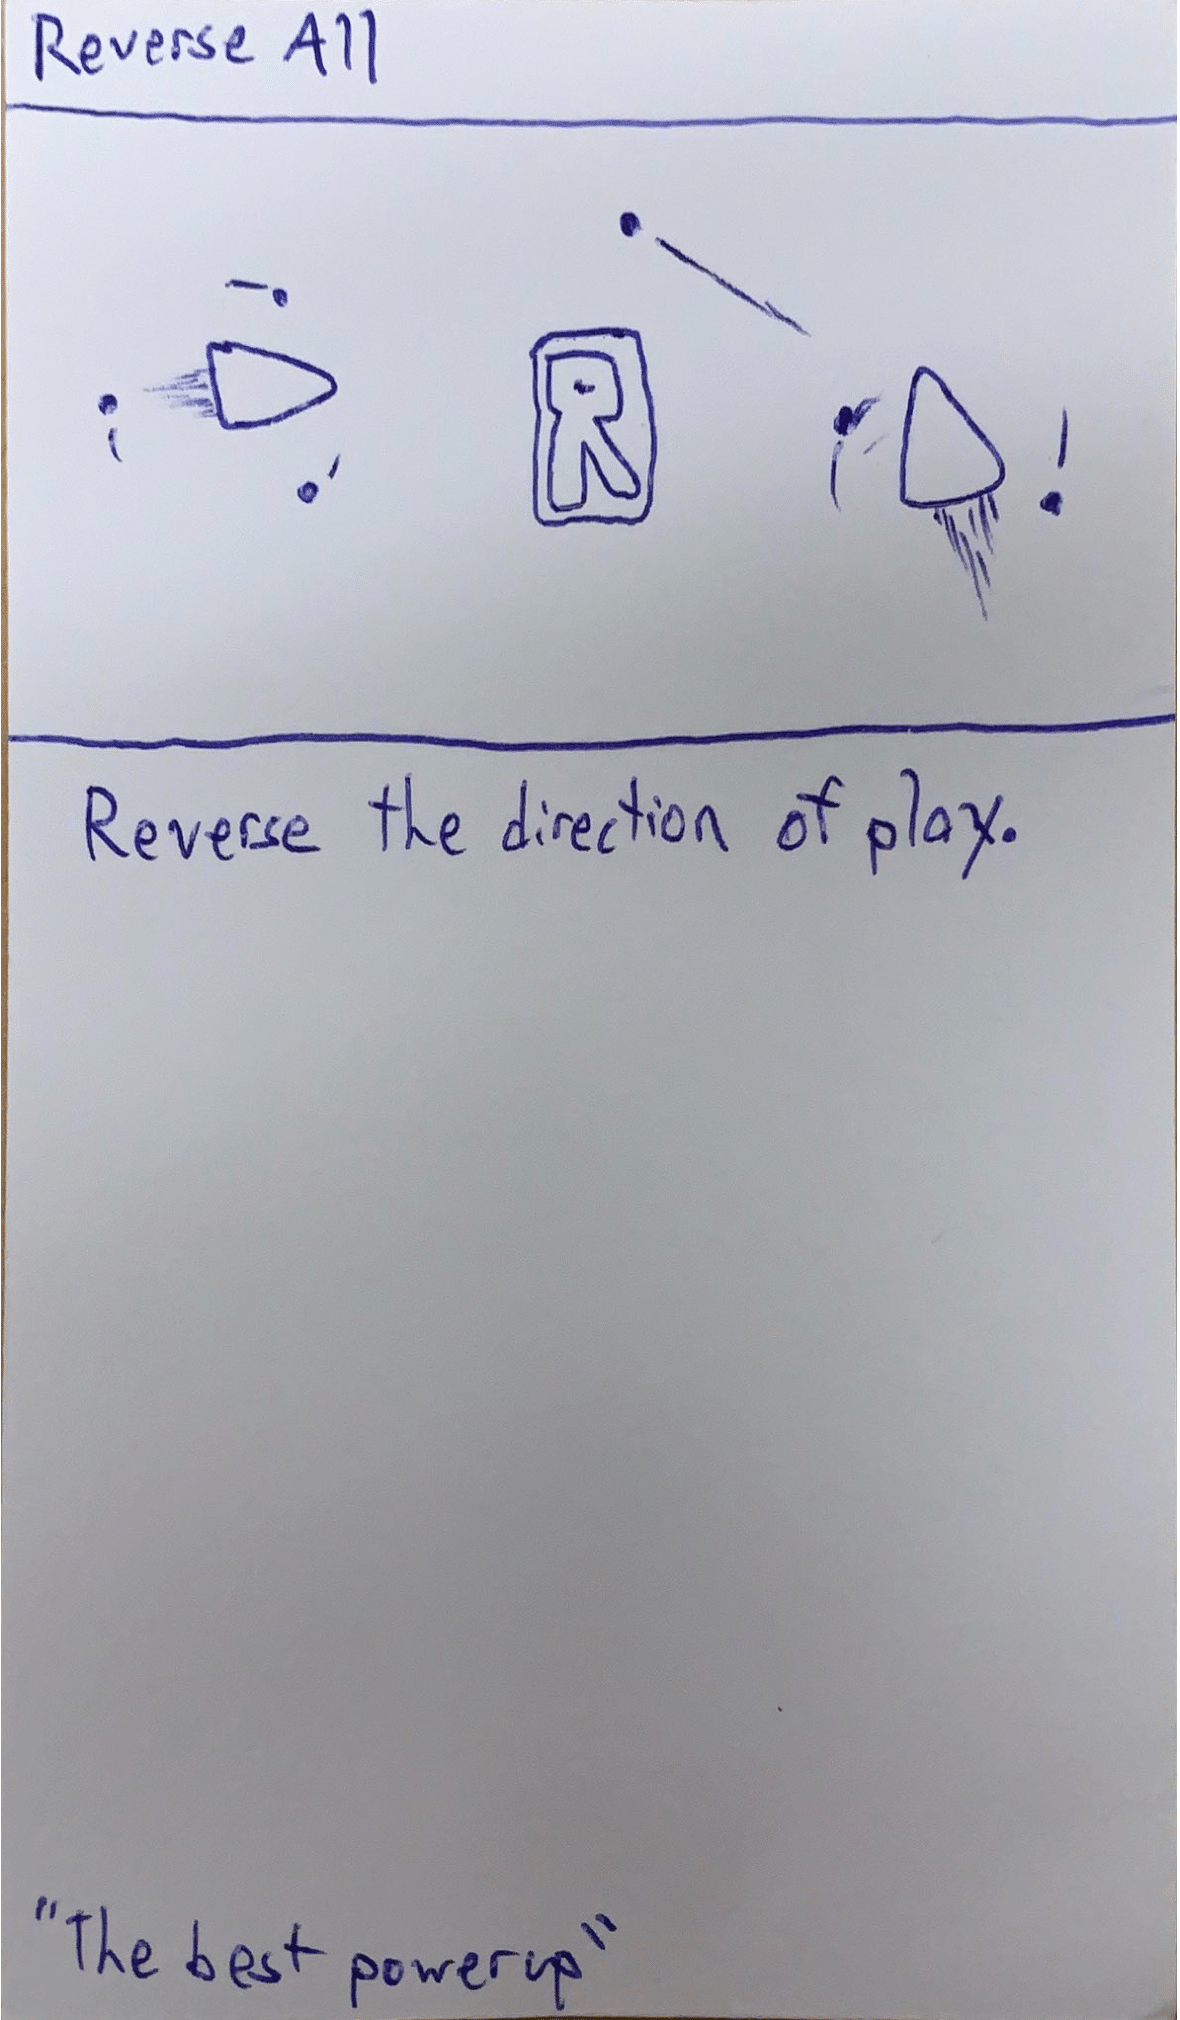 Reverse All
R
Reverse the direction of play.
"The best powerup"